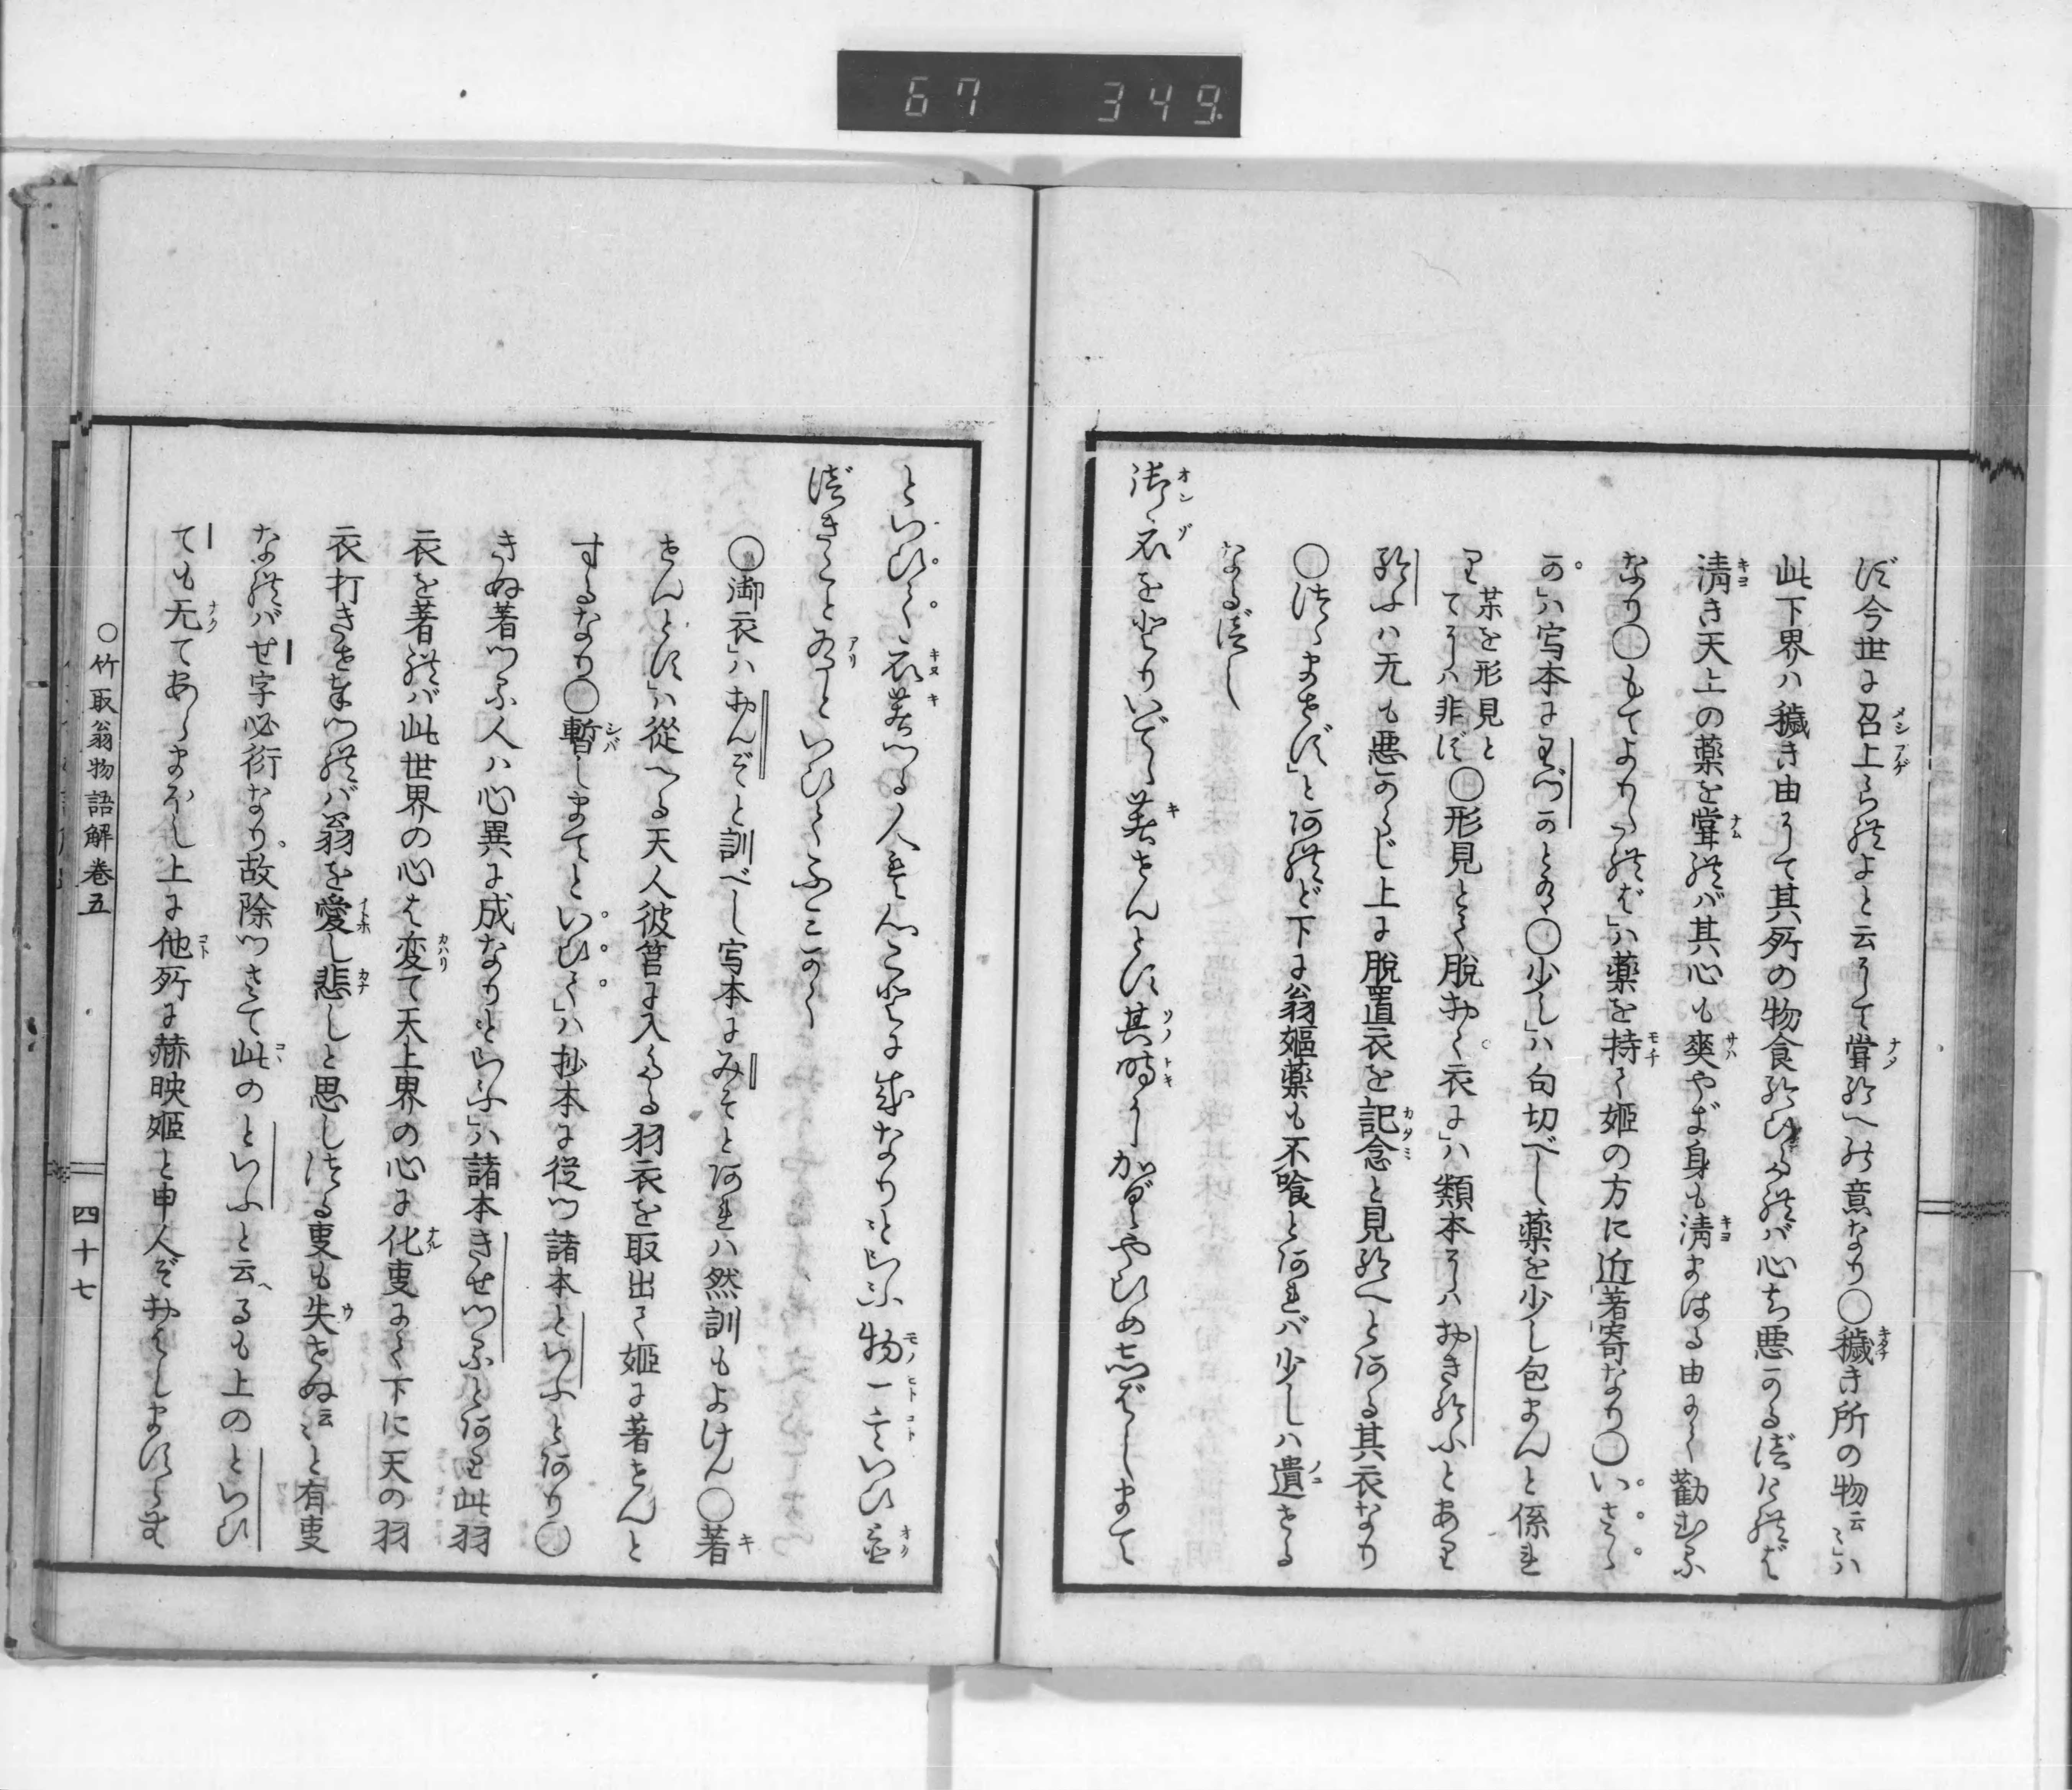 67 349
ず今世に召上られよと云にて甞給への意なり○穢き所の物云々」ハ
此下界ハ穢き由にて其所の物食給ひたれバ心ち悪かるべけれバ
清き天上の薬を甞れバ其心も爽やぎ身も清まはる由にて勧むる
なり○もてよりたれば」ハ薬を持て姫の方に近著寄なり○いさゝ
か」ハ写本にわづかとあり○少し」ハ句切べし薬を少し包まんと係れ
り某を形見とてにハ非ず○形見とて脱おく衣に」ハ類本にハおき給ふとあり
給ふハ无も悪からじ上に脱置衣を記念と見給へとある其衣なり
○つゝませず」とあれど下に翁嫗薬も不喰とあれバ少しハ遺せる
なるべし
御衣をとりいでゝ著せんとす其時にかぐやひめ志ばしまて
といひて衣著つる人ハ心ことに成なりといふ物一言いひ置
べきことありといひてふミかく
○御衣」ハおんぞと訓べし写本にみそとあれハ然訓もよけん○著
せんとす」ハ従へる天人彼筥に入たる羽衣を取出て姫に著せんと
するなり○暫しまてといひて」ハ抄本に従つ諸本といふとあり○
きぬ著つる人ハ心異に成なりといふ」ハ諸本きせつるとあり此羽
衣を著れバ此世界の心は変て天上界の心に化事にて下に天の羽
衣打きせ奉つれバ翁を愛し悲しと思しつる事も失せぬ云々と有事
なれバせ字必衍なり故除つさて此のといふと云へるも上のといひ
ても无てあらまほし上に他所に赫映姫と申人ぞおはしますらむ
○竹取翁物語解巻五
四十七